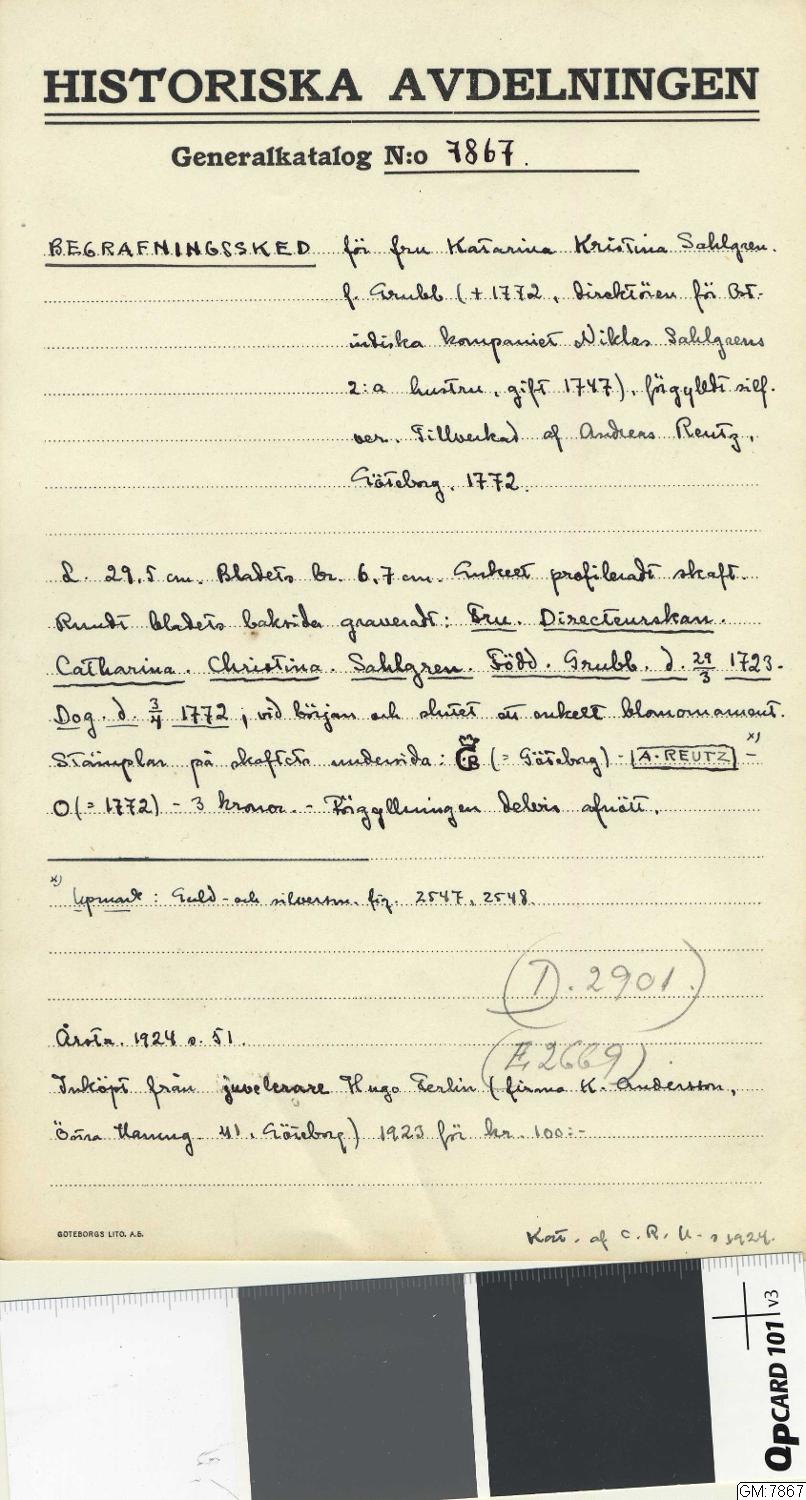 HISTORISKA AVDELNINGEN
Generalkatalog N:o 7867.
BEGRAFNINGSSKED för fru Katarina Kristina Sahlgren.
f. Grubb (+ 1772, direktören för Ost-
indiska kompaniet Niklas Sahlgrens
2:a hustru, gift 1747), förgylldt silf-
ver. Tillverkad af Andreas Reutz,
Göteborg. 1772.
L. 29,5 cm. Bladets br. 6,7 cm. Enkelt profileradt skaft.
Rundt bladets baksida graveradt: Fru. Directeurskan.
Catharina. Christina. Sahlgren. Född. Grubb. d. 29/3 1723.
Dog. d. 3/4 1772; vid början och slutet ett enkelt blomornament.
Stämplar på skaftets undersida: GB (= Göteborg) - A·REUTZ x) -
O (= 1772) - 3 kronor. - Förgyllningen delvis afnött.
x) Upmark: Guld- och silversm. fig. 2547, 2548.
(D. 2901.)
Årsta. 1924 s. 51.
(E 2669).
Inköpt från juvelerare Hugo Ferlin (firma K. Andersson,
Östra Hamng. 41, Göteborg) 1923 för kr. 100:-
GÖTEBORGS LITO. A.B.
Kat. af C. R. U. 1924.
QPCARD 101 v3
GM:7867